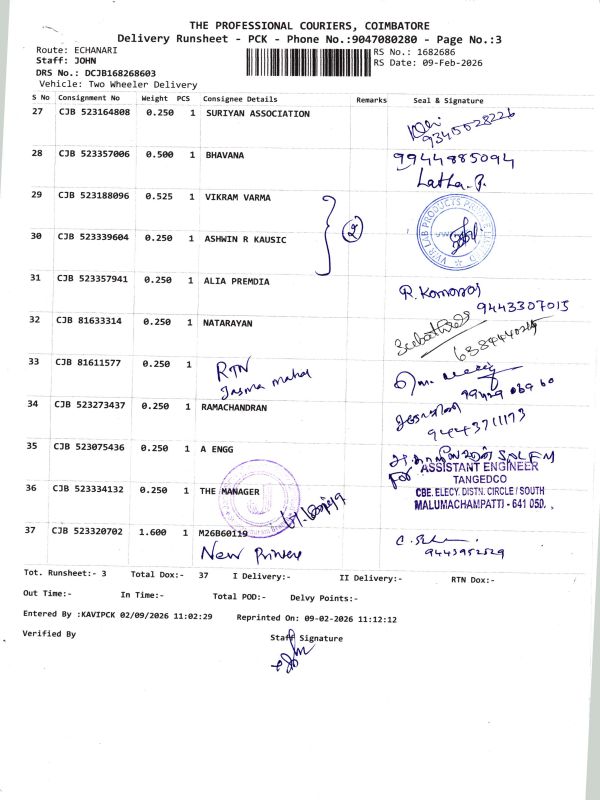 THE PROFESSIONAL COURIERS, COIMBATORE
Delivery Runsheet - PCK - Phone No.:9047080280 - Page No.:3
Route: ECHANARI
RS No.: 1682686
Staff: JOHN
RS Date: 09-Feb-2026
DRS No.: DCJB168268603
Vehicle: Two Wheeler Delivery
S No Consignment No Weight PCS Consignee Details Remarks Seal & Signature
27 CJB 523164808 0.250 1 SURIYAN ASSOCIATION
28 CJB 523357006 0.500 1 BHAVANA 9944885094
Latha.P.
29 CJB 523188096 0.525 1 VIKRAM VARMA
2
30 CJB 523339604 0.250 1 ASHWIN R KAUSIC
31 CJB 523357941 0.250 1 ALIA PREMDIA
9443307015
32 CJB 81633314 0.250 1 NATARAYAN
33 CJB 81611577 0.250 1 RTN
Jasma mahal
34 CJB 523273437 0.250 1 RAMACHANDRAN
35 CJB 523075436 0.250 1 A ENGG
FOR ASSISTANT ENGINEER
TANGEDCO
36 CJB 523334132 0.250 1 THE MANAGER
CBE. ELECY. DISTN. CIRCLE / SOUTH
MALUMACHAMPATTI - 641 050.
37 CJB 523320702 1.600 1 M26B60119
New Princ
Tot. Runsheet:- 3 Total Dox:- 37 I Delivery:- II Delivery:- RTN Dox:-
Out Time:- In Time:- Total POD:- Delvy Points:-
Entered By :KAVIPCK 02/09/2026 11:02:29 Reprinted On: 09-02-2026 11:12:12
Verified By Staff Signature